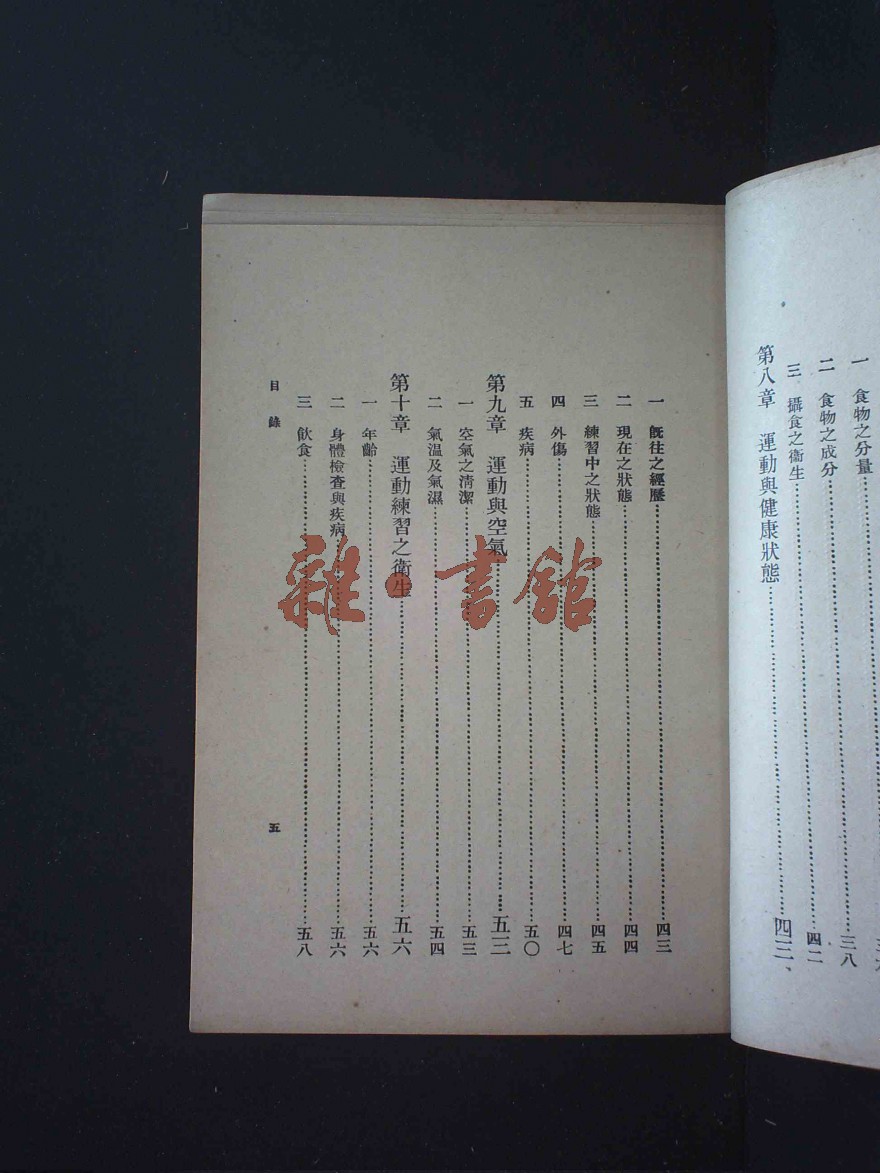 一 食物之分量
二 食物之成分…………三八
三 攝食之衞生…………四二
第八章 運動與健康狀態…………四三
一 旣往之經歷…………四三
二 現在之狀態…………四四
三 練習中之狀態…………四五
四 外傷…………四七
五 疾病…………五〇
第九章 運動與空氣…………五三
一 空氣之淸潔…………五三
二 氣温及氣濕…………五四
第十章 運動練習之衞生…………五六
一 年齡…………五六
二 身體檢查與疾病…………五六
三 飲食…………五八
目錄
五
雜·書館